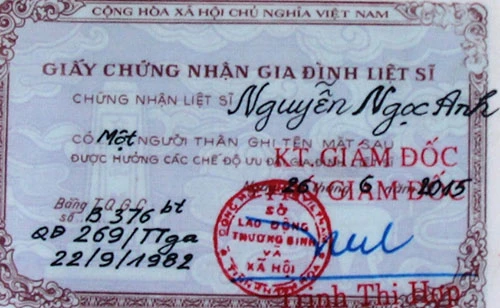 CỘNG HÒA XÃ HỘI CHỦ NGHĨA VIỆT NAM
GIẤY CHỨNG NHẬN GIA ĐÌNH LIỆT SĨ
CHỨNG NHẬN LIỆT SĨ Nguyễn Ngọc Anh
CÓ Một NGƯỜI THÂN GHI TÊN MẶT SAU
ĐƯỢC HƯỞNG CÁC CHẾ ĐỘ ƯU ĐÃI
KT. GIÁM ĐỐC
26 tháng 6 năm 2015
GIÁM ĐỐC
Bằng T.Q.G.C
số B 376 bt
QĐ 269/TTga
22/9/1982
SỞ
LAO ĐỘNG
THƯƠNG BINH
VÀ
XÃ HỘI
Trịnh Thị